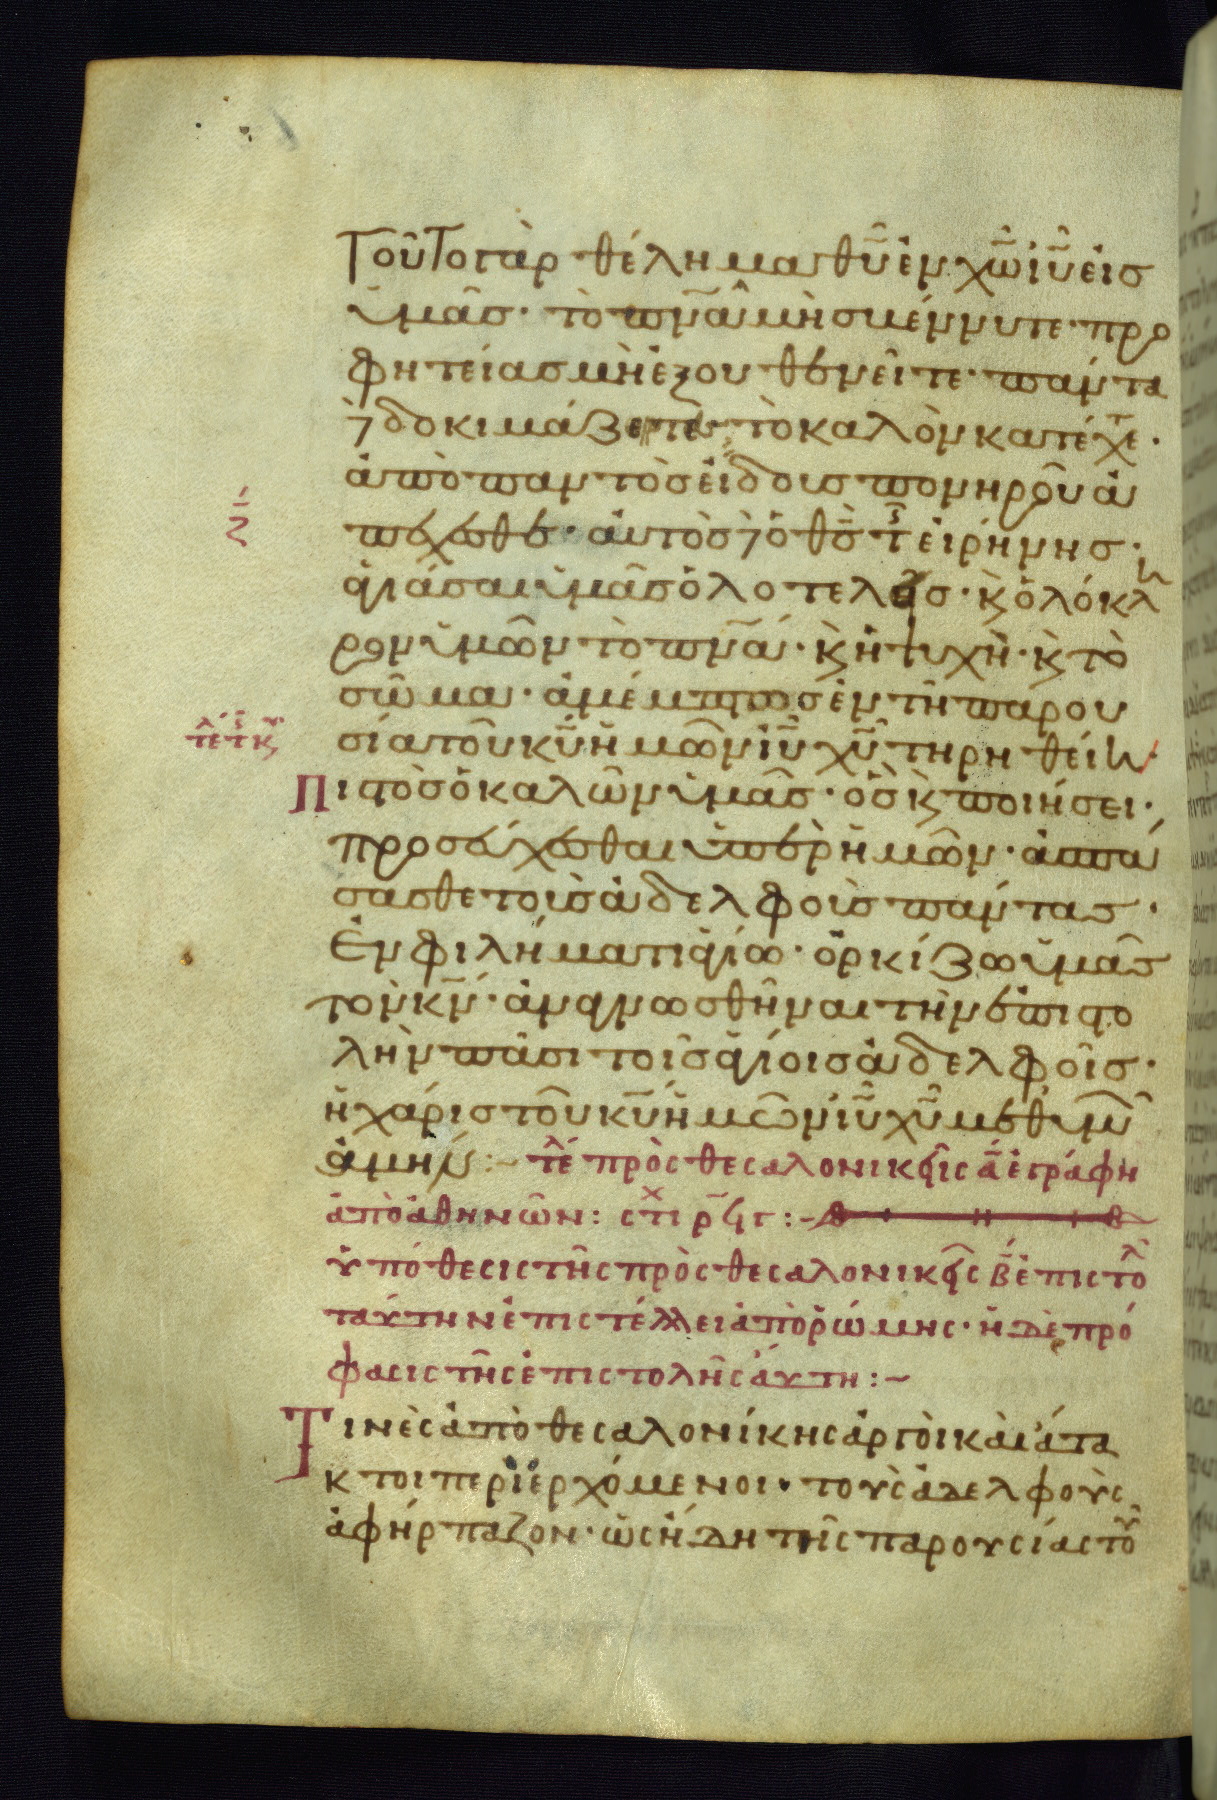 Τοῦτο γὰρ θέλημα θῦ ἐν χῶ ιῦ εἰς
ὑμᾶς· τὸ πνᾶ μὴ σβέννυτε· προ
φητείας μὴ ἐξουθενεῖτε· πάντα
δοκιμάζετε τὸ καλὸν κατέχετε·
ἀπὸ παντὸς εἴδους πονηροῦ ἀ
πέχεσθε· αὐτὸς δὲ ὁ θς τῆς εἰρήνης·
ξ
ἁγιάσαι ὑμᾶς ὁλοτελεῖς· κ ὁλόκλη
ρον ὑμῶν τὸ πνᾶ· κ ἡ ψυχὴ· κ τὸ
σῶμα· ἀμέμπτως ἐν τῆ παρου
σία τοῦ κῦ ἡμῶν ιῦ χῦ τηρηθείη·
Πιστὸς ὁ καλῶν ὑμᾶς· ὃς κ ποιήσει·
προσεύχεσθαι ὑπὲρ ἡμῶν· ἀσπά
σασθε τοὺς ἀδελφοὺς πάντας·
Ἐν φιλήματι ἁγίω· ὁρκίζω ὑμᾶς
τὸν κν· ἀναγνωσθῆναι τὴν ἐπιστο
λὴν πᾶσι τοῖς ἁγίοις ἀδελφοῖς·
ἡ χάρις τοῦ κῦ ἡμῶν ιῦ χῦ μεθ ὑμῶν
ἀμήν:~ τέ πρὸς θεσαλονικεῖς ά ἐγράφη
ἀπὸ ἀθηνῶν: στίχ ρϟγ:~
ὑπόθεσις τῆς πρὸς θεσαλονικεῖς β ἐπιστολ
ταύτην ἐπιστέλλει ἀπὸ ῥώμης· ἡ δὲ πρό
φασις τῆς ἐπιστολῆς αύτη:~
Τινὲς ἀπὸ θεσαλονίκης ἀργοὶ καὶ ἄτα
κτοι περιερχόμενοι· τοὺς ἀδελφοὺς
ἀφήρπαζον· ὡς ἤδη τῆς παρουσίας τοῦ